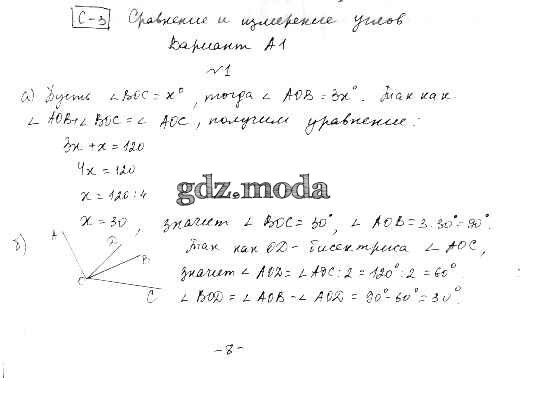 С-3 Сравнение и измерение углов
Вариант А1
№1
а) Пусть ∠ BOC = x°, тогда ∠ AOB = 3x°. Так как
∠ AOB+∠ BOC = ∠ AOC, получим уравнение:
3x + x = 120
4x = 120
x = 120 : 4
gdz.moda
x = 30, значит ∠ BOC = 30°, ∠ AOB = 3·30° = 90°.
б) Так как OD - биссектриса ∠ AOC,
A D B O C
значит ∠ AOD = ∠ AOC : 2 = 120° : 2 = 60°.
∠ BOD = ∠ AOB - ∠ AOD = 90° - 60° = 30°.
-8-